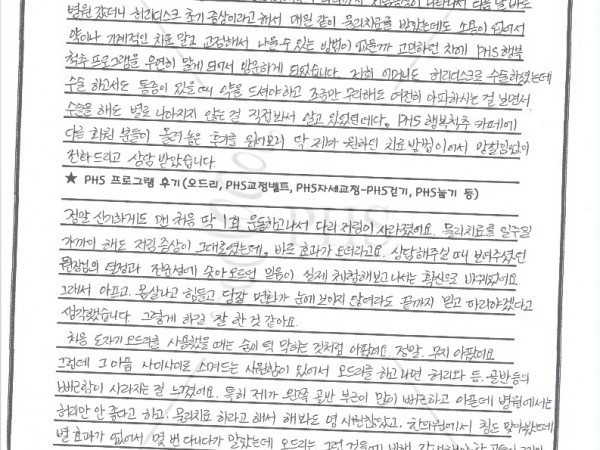 병원 갔더니 허리디스크 초기 증상이라고 해서 매일 같이 물리치료를 받았는데도 소용이 없어서
약이나 기계적인 치료 말고 교정해서 나을 수 있는 방법이 없을까 고민하던 차에 PHS 행복
척추 프로그램을 우연히 알게 되어서 방문하게 되었습니다. 저희 어머니도 허리디스크로 수술하셨는데
수술 하고서도 통증이 있을 때 약을 드셔야하고 조금만 무리해도 여전히 아파하시는 걸 보면서
수술을 해도 별로 나아지지 않는 걸 직접봐서 알고 있었던데다, PHS 행복척추 카페에
다른 회원 분들이 올려놓은 후기를 읽어보니 딱 제가 원하던 치료방법이어서 망설임없이
전화드리고 상담 받았습니다.
★ PHS 프로그램 후기(오드리, PHS교정벨트, PHS자세교정-PHS걷기, PHS눕기 등)
정말 신기하게도 맨 처음 딱 1회 운동하고나서 다리 저림이 사라졌어요. 물리치료를 일주일
가까이 해도 저림증상이 그대로였는데, 바로 효과가 오더라고요. 상담해주실 때 보여주셨던
원장님의 열정과 전문성에 솟아오르던 믿음이 실제 체험해보고 나서는 확신으로 바뀌었어요.
그래서 아프고, 몸살나고 힘들고 당장 변화가 눈에 보이지 않더라도 끝까지 믿고 따라야겠다고
생각했습니다. 그렇게 하길 잘 한 것 같아요.
처음 도자기 오드리를 사용했을 때는 숨이 턱 막히는 것처럼 아팠어요. 정말. 무지 아팠어요
그런데 그 아픔 사이사이로 스며드는 시원함이 있어서 오드리를 하고 나면 허리와 등, 골반등의
뻐근함이 사라지는 걸 느꼈어요. 특히 제가 왼쪽 골반 부근이 많이 뻐근하고 아픈데 병원에서는
허리만 안 좋다고 하고. 물리치료 하라고 해서 해봐도 영 시원찮았고. 한의원에서 침도 맞아봤는데
별 효과가 없어서 몇 번 다니다가 말았는데 오드리는 그런 것들에 비해